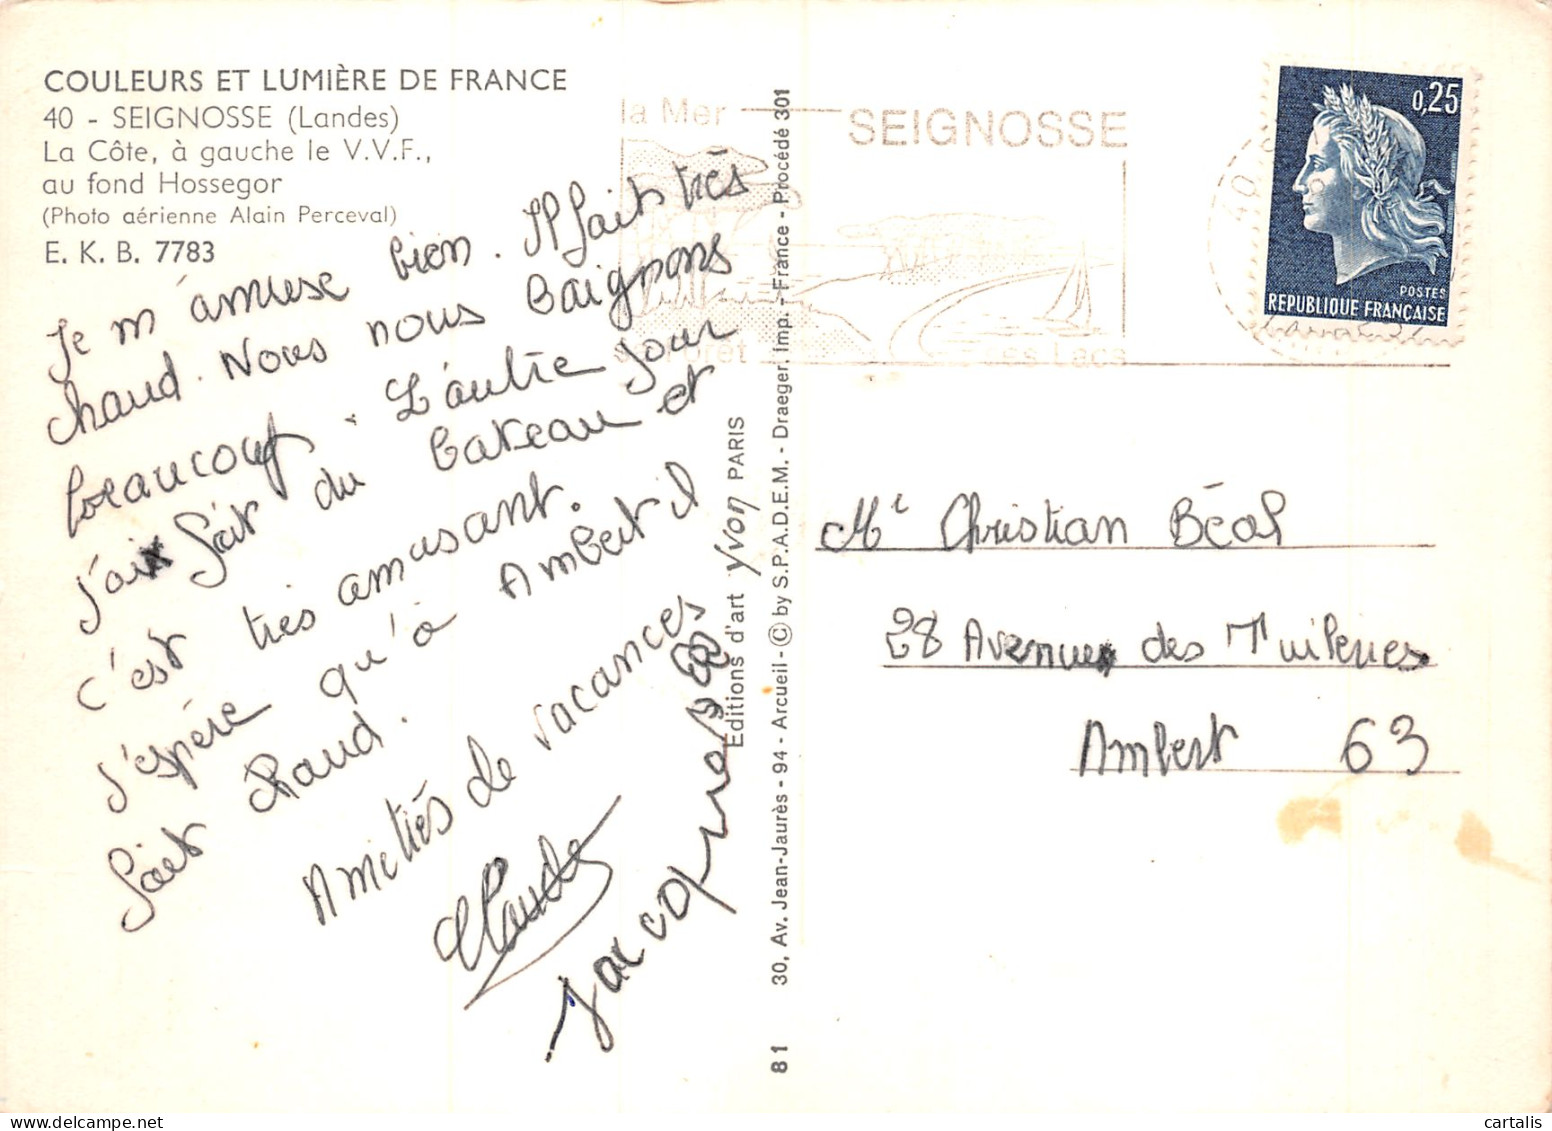 COULEURS ET LUMIÈRE DE FRANCE
40 - SEIGNOSSE (Landes)
La Côte, à gauche le V.V.F.,
au fond Hossegor
(Photo aérienne Alain Perceval)
E. K. B. 7783
Je m'amuse bien. Il fait très
chaud. Nous nous baignons
beaucoup. L'autre jour
j'ai fait du bateau et
c'est très amusant.
J'espère qu'à Ambert il
fait chaud.
Amitiés de vacances
Claude
Jacqueline
Editions d'art Yvon PARIS
30, Av. Jean-Jaurès - 94 - Arcueil - © by S.P.A.D.E.M. - Draeger, Imp. - France - Procédé 301
81
la Mer
SEIGNOSSE
sa Forêt
Les Lacs
0,25
POSTES
REPUBLIQUE FRANÇAISE
Mr Christian Béal
28 Avenue des Tuileries
Ambert 63
cartalis